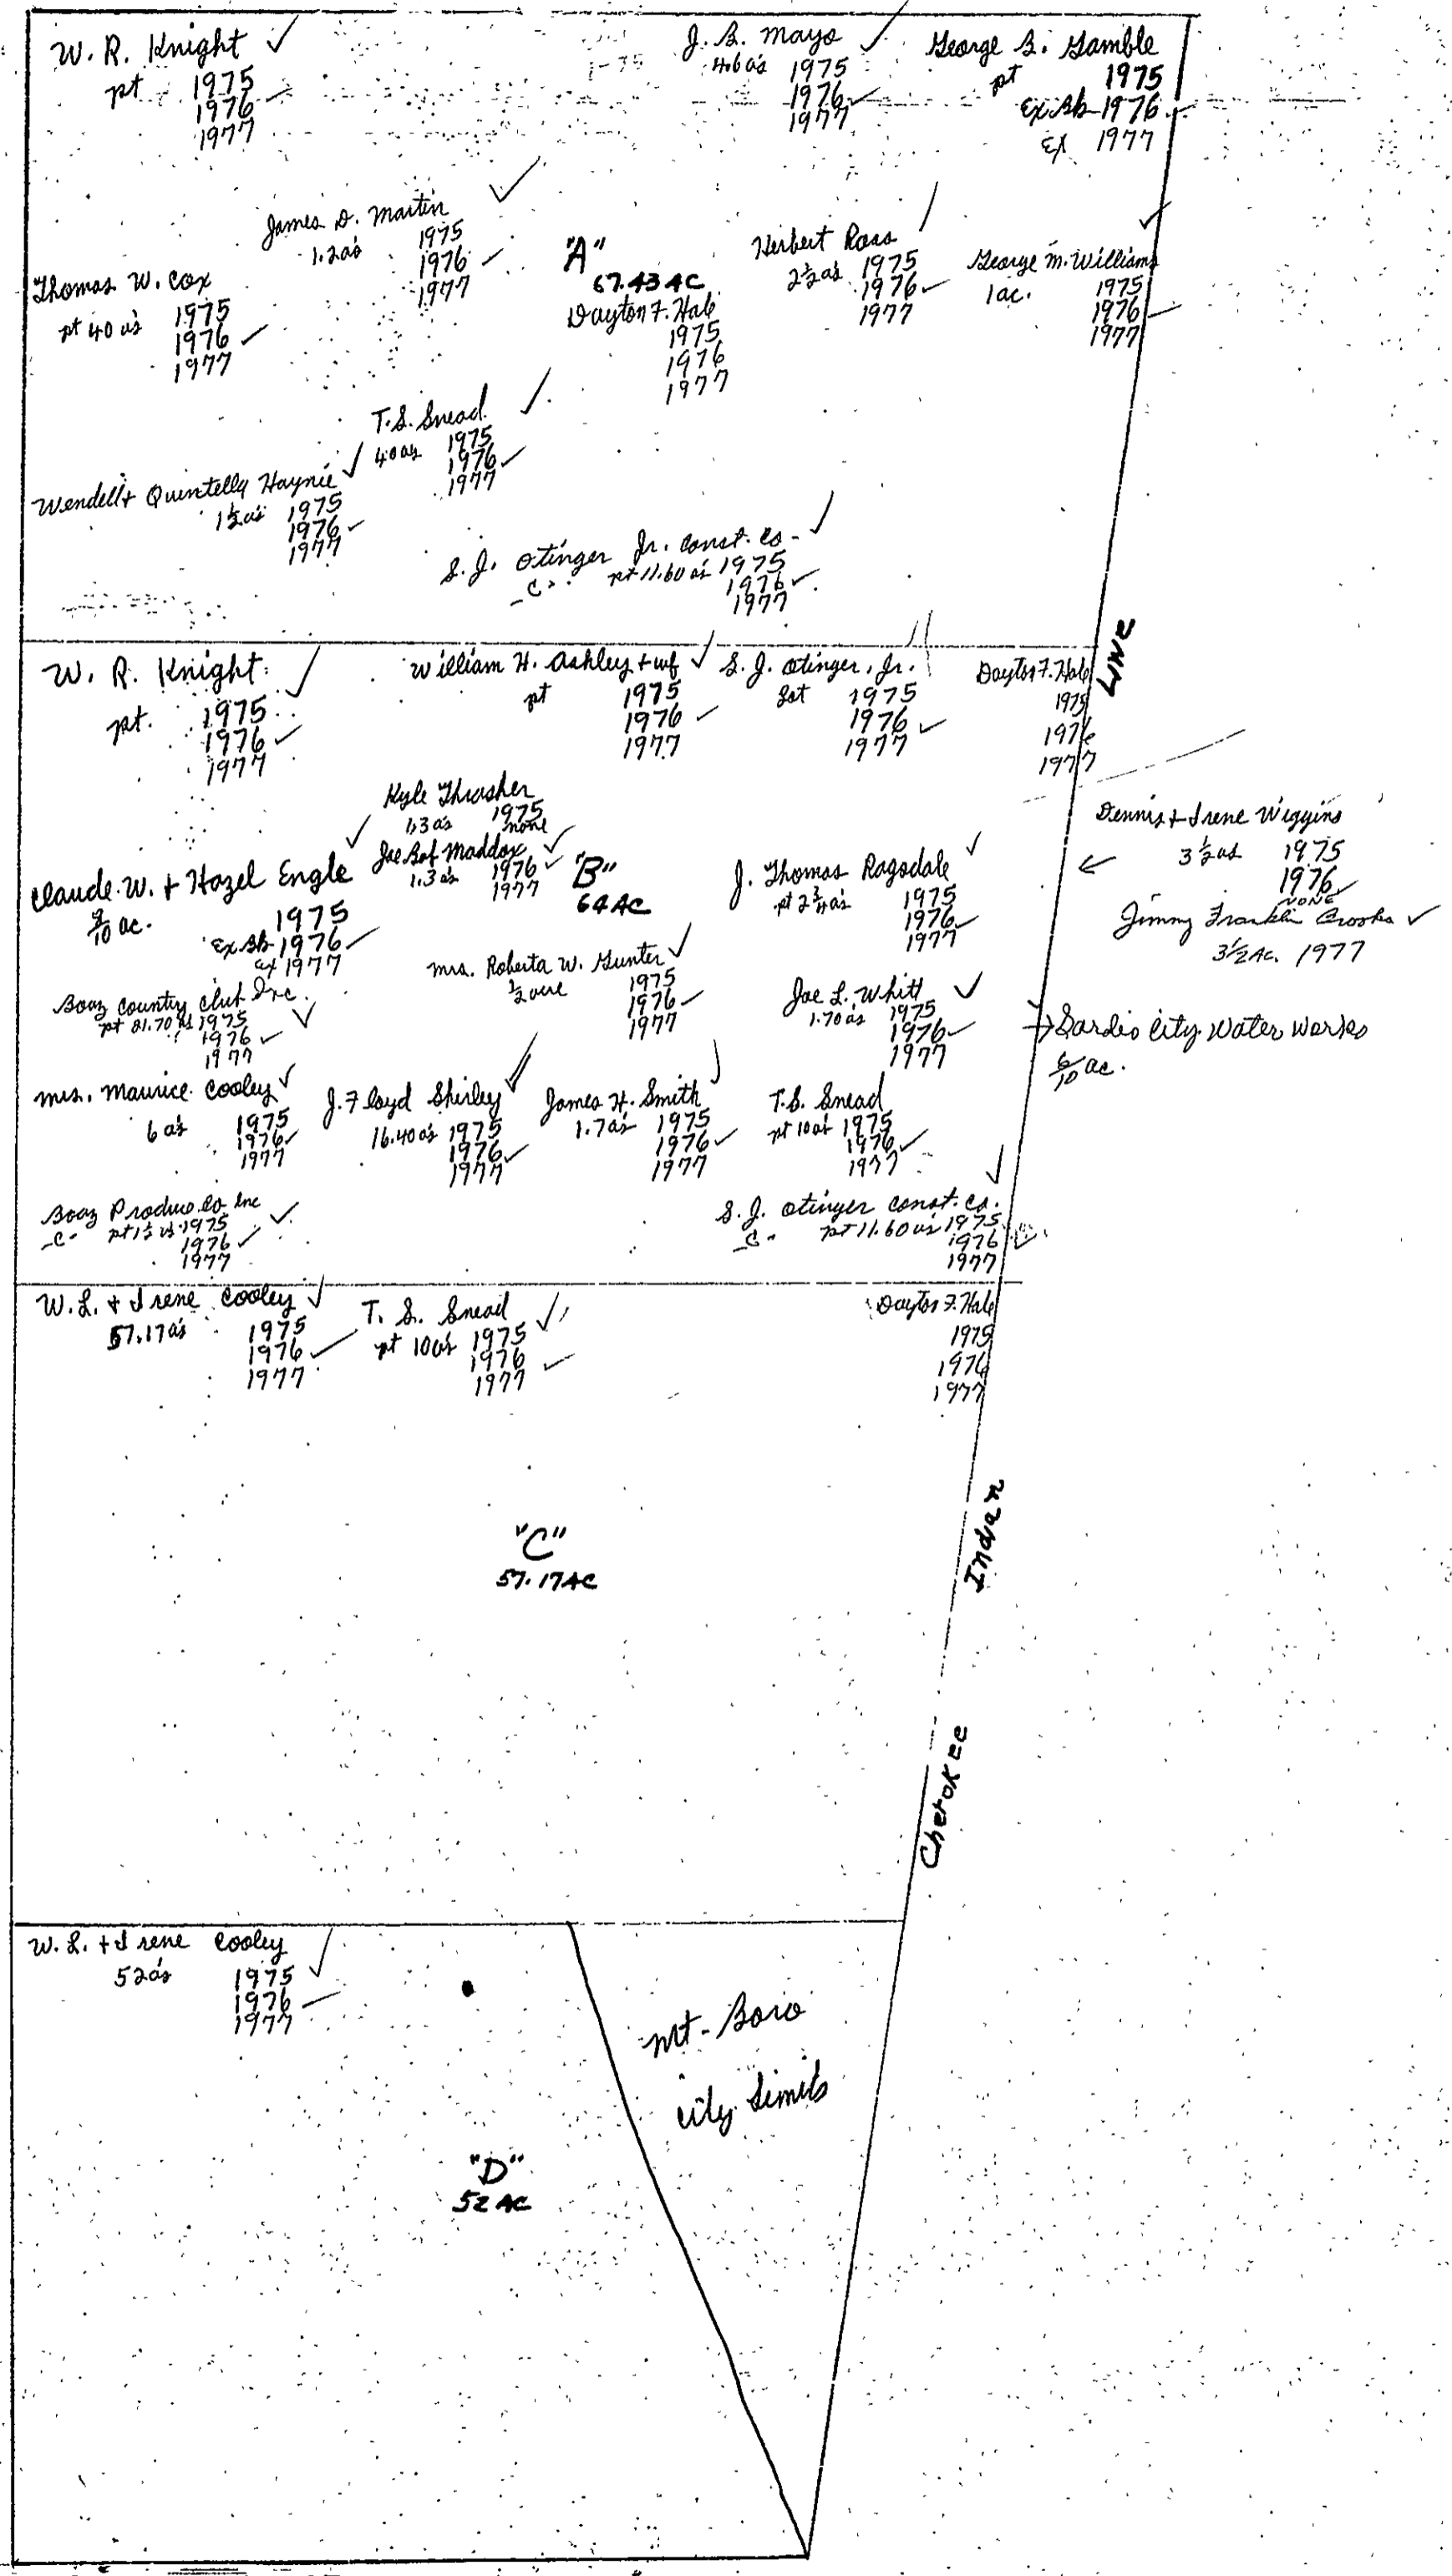 W. R. Knight ✓
pt 1975
1976 ✓
1977
J. B. Mayo ✓
4.6 a's 1975
1976 ✓
1977
George B. Gamble
pt 1975
Ex. Sb 1976
Ex 1977
James D. Martin ✓
1.2 a's 1975
1976 ✓
1977
Thomas W. Cox
pt 40 a's 1975
1976 ✓
1977
"A"
67.43 AC
Dayton F. Hale
1975
1976
1977
Herbert Ross
2 1/2 a's 1975
1976 ✓
1977
George M. Williams ✓
1 ac. 1975
1976
1977
T. S. Snead ✓
40 a's 1975
1976 ✓
1977
Wendell + Quintella Haynie ✓
1 1/2 a's 1975
1976 ✓
1977
S. J. Otinger Jr. Const. Co. ✓
-C- pt 11.60 a's 1975
1976 ✓
1977
W. R. Knight ✓
pt. 1975
1976 ✓
1977
William H. Ashley + wf ✓
pt 1975
1976 ✓
1977
S. J. Otinger, Jr.
Lot 1975
1976
1977 ✓
Dayton F. Hale
1975
1976
1977
LINE
Kyle Thrasher
1.3 a's 1975
none
Joe Bob Maddox ✓
1.3 a's 1976 ✓
1977
Claude W. + Hazel Engle ✓
ac. 1975
Ex. Sb 1976 ✓
Ex 1977
"B"
64 AC
J. Thomas Ragsdale ✓
pt 2 3/4 a's 1975
1976 ✓
1977
Dennis + Irene Wiggins
3 1/2 a's 1975
1976 ✓
NONE
Jimmy Franklin Crooks ✓
3 1/2 AC. 1977
Mrs. Roberta W. Gunter ✓
1/2 acre 1975
1976 ✓
1977
Boaz Country Club Inc. ✓
pt 21.70 a's 1975
1976 ✓
1977
Joe L. Whitt ✓
1.70 a's 1975
1976 ✓
1977
Sardis City Water Works
6/10 ac.
Mrs. Maurice Cooley ✓
6 a's 1975
1976 ✓
1977
J. Floyd Shirley ✓
16.40 a's 1975
1976 ✓
1977
James H. Smith
1.7 a's 1975
1976 ✓
1977
T. S. Snead
pt 10 a's 1975
1976 ✓
1977
Boaz Produce Co. Inc ✓
-C- pt 1 1/2 a's 1975
1976 ✓
1977
S. J. Otinger Const. Co. ✓
-C- pt 11.60 a's 1975
1976 ✓
1977
W. L. + Irene Cooley ✓
57.17 a's 1975
1976 ✓
1977
T. S. Snead ✓
pt 10 a's 1975
1976 ✓
1977
Dayton F. Hale
1975
1976
1977
"C"
57.17 AC
Indian
Cherokee
W. L. + Irene Cooley ✓
52 a's 1975
1976
1977
Mt-Boro
City Limits
"D"
52 AC